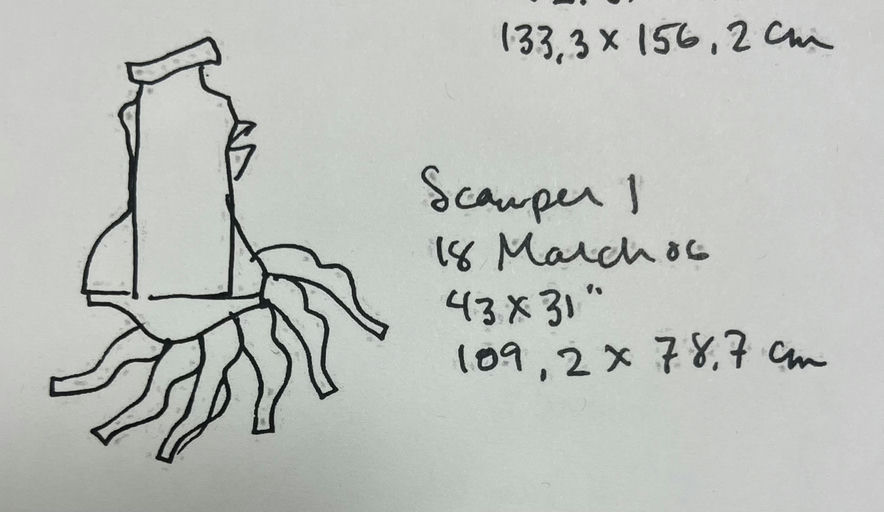 133,3 x 156,2 cm
Scamper 1
18 March 06
43 x 31"
109,2 x 78,7 cm